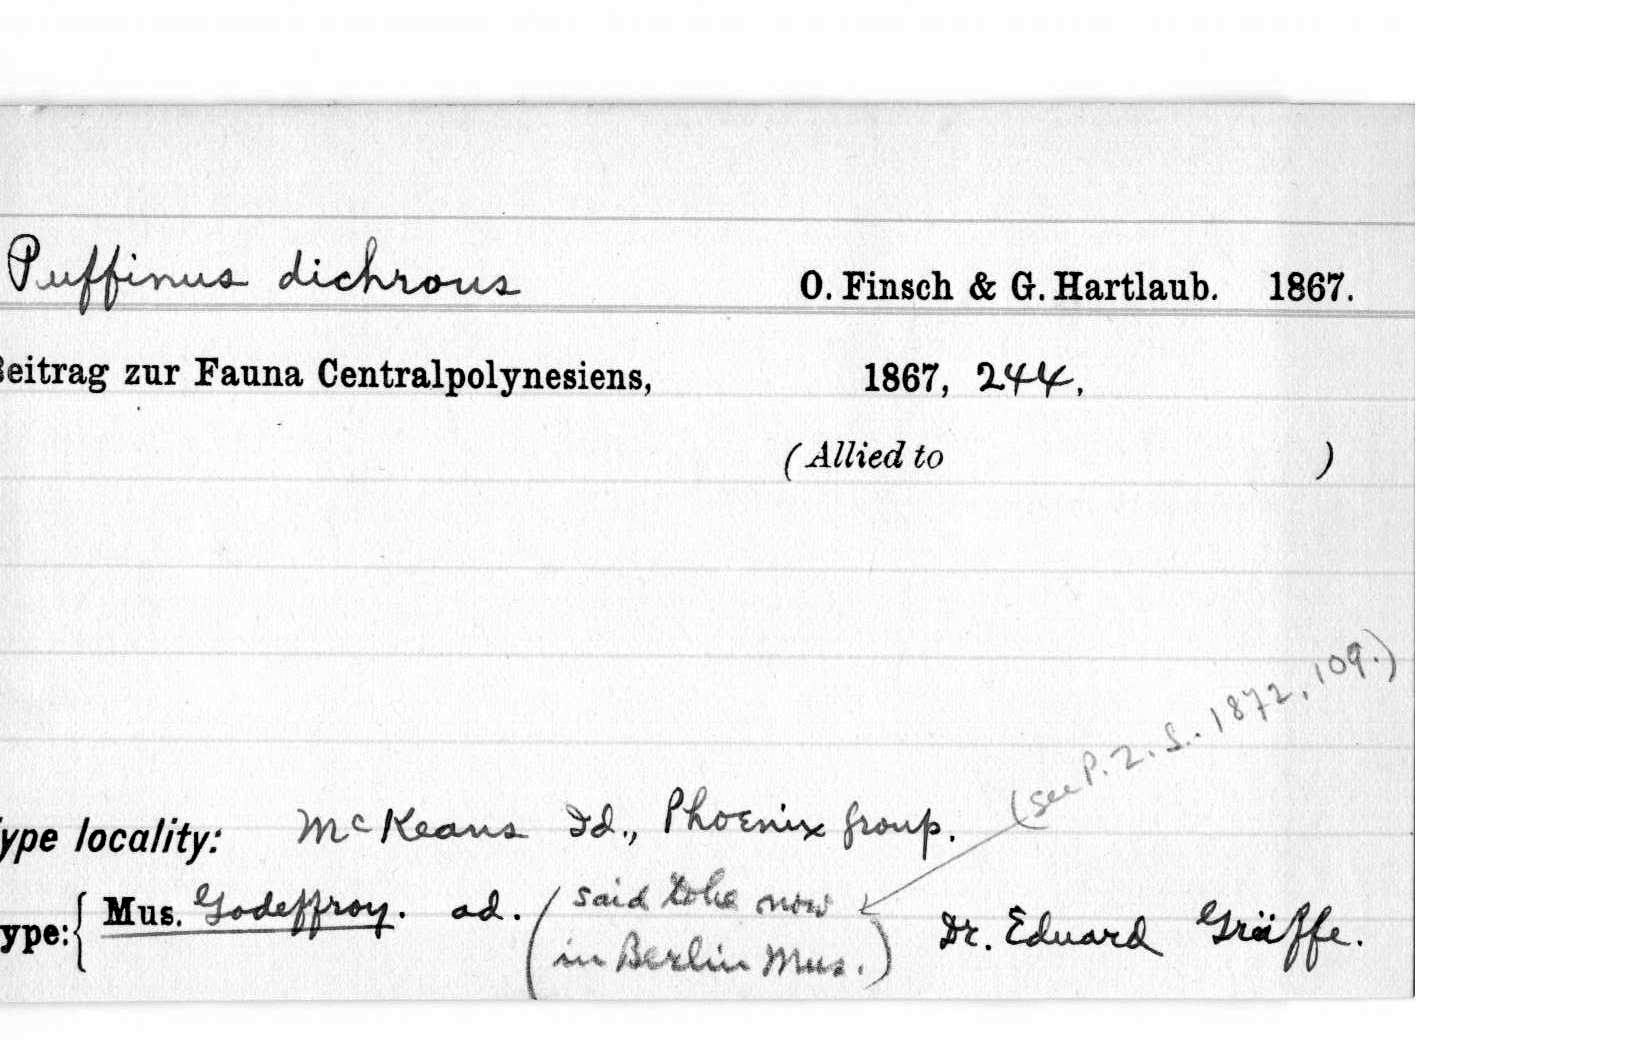 Puffinus dichrous O. Finsch & G. Hartlaub. 1867.
Beitrag zur Fauna Centralpolynesiens, 1867, 244.
(Allied to )
(see P.Z.S. 1872, 109.)
Type locality: McKeans Id., Phoenix group.
Type: { Mus. Godeffroy. ad. (said to be now Dr. Eduard Gräffe.
in Berlin Mus.)